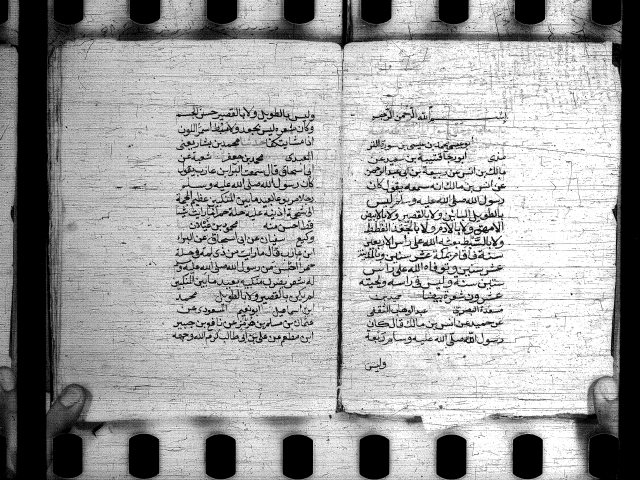 بسم الله الرحمن الرحيم
ابو عيسى محمد بن عيسى بن سورة
ابو رجا قتيبة بن سعيد عن
مالك بن انس عن ربيعة بن ابي عبد الرحمن
عن انس بن مالك انه سمعه يقول كان
رسول الله صلى الله عليه وسلم ليس
بالطويل البائن ولا بالقصير ولا بالابيض
الامهق ولا بالادم ولا بالجعد القطط
ولا بالسبط بعثه الله على راس اربعين
سنة فاقام بمكة عشر سنين وبالمدينة
عشر سنين وتوفاه الله على راس
ستين سنة وليس في راسه ولحيته
عشرون شعرة بيضا حميد بن
مسعدة البصري عبد الوهاب الثقفي
عن حميد عن انس بن مالك قال كان
رسول الله صلى الله عليه وسلم ربعة
وليس
وليس بالطويل ولا بالقصير حسن الجسم
وكان شعره ليس بجعد ولا سبط اسمر اللون
اذا مشى يتكفا محمد بن بشار يعني
العبدي محمد بن جعفر شعبة عن
ابي اسحاق قال سمعت البراء بن عازب يقول
كان رسول الله صلى الله عليه وسلم
رجلا مربوعا بعيد ما بين المنكبين عظيم الجمة
الى شحمة اذنيه عليه حلة حمرا ما رايت شيا
قط احسن منه محمود بن غيلان
وكيع سفيان عن ابي اسحاق عن البراء
بن عازب قال ما رايت من ذي لمة في حلة
حمرا احسن من رسول الله صلى الله عليه وسلم
له شعر يضرب منكبيه بعيد ما بين المنكبين
لم يكن بالقصير ولا بالطويل محمد
بن اسماعيل ابو نعيم المسعودي عن
عثمان بن مسلم بن هرمز عن نافع بن جبير
ابن مطعم عن علي بن ابي طالب كرم الله وجهه